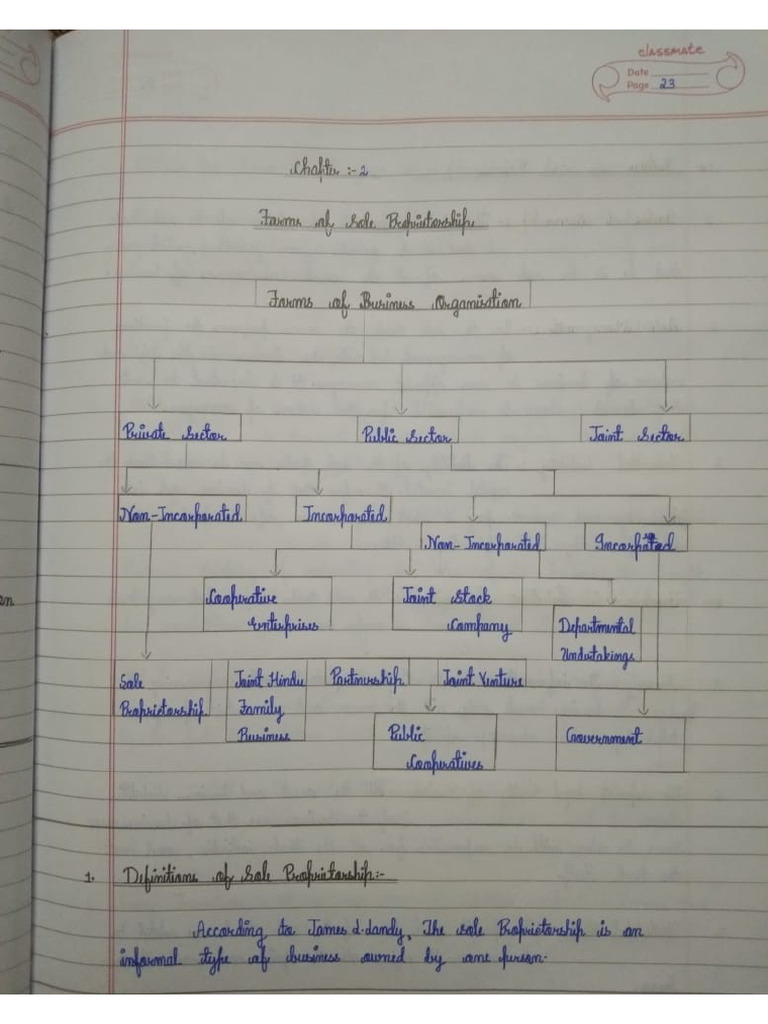 classmate
Date
Page 23
Chapter :- 2
Forms of Sole Proprietorship
Forms of Business Organisation
Private Sector
Public Sector
Joint Sector
Non-Incorporated
Incorporated
Non-Incorporated
Incorporated
Cooperative
Enterprises
Joint Stock
Company
Departmental
Undertakings
Sole
Proprietorship
Joint Hindu
Family
Business
Partnership
Joint Venture
Public
Cooperatives
Government
1. Definitions of Sole Proprietorship:-
According to James d. dandy, The sole Proprietorship is an
informal type of business owned by one person.
en